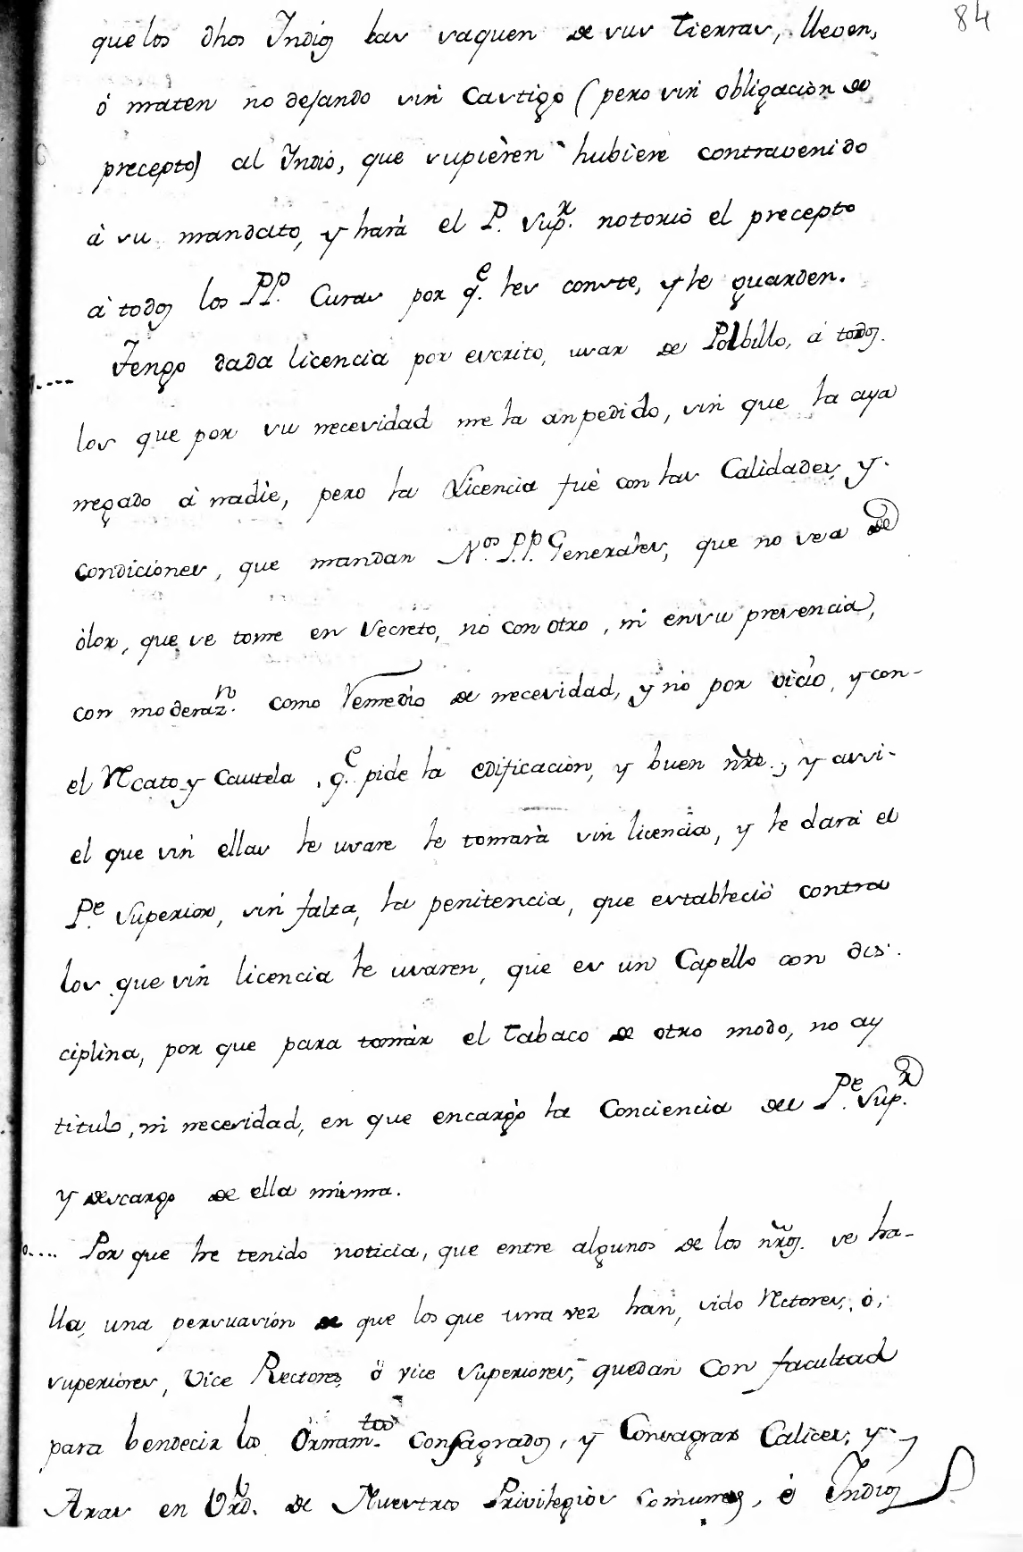 84
que los dhos Indios las saquen de sus tierras, lleven,
ó maten no dejando sin castigo (pero sin obligaciòn de
precepto) al Indio, que supièren hubiere contravenido
à su mandato, y harà el P. Sup.r notoriò el precepto
à todos los PP. Curas por q.e les conste, y le guarden.
Tengo dada licencia por escrito, usar de Polbillo, á todos
los que por su necesidad me la an pedido, sin que la aya
negado à nadie, pero la Licencia fuè con las Calidades, y
condiciones, que mandan N.os P.P. Generales, que no sea de
òlor, que se tome en secreto, no con otro, ni en su presencia,
con moderaz.n como Remedio de necesidad, y no por vicio, y con
el Rcato y Cautela, q.e pide la edificación, y buen nrê.; y assi
el que sin ellas le usare le tomarà sin licencia, y le darà el
P.e Superior, sin falta, la penitencia, que estableciò contra
los que sin licencia le usaren, que es un Capello con dis
ciplina, por que para tomàr el tabaco de otro modo, no ay
titulo, ni necesidad, en que encargò la Conciencia del P.e Sup.r
y descargo de ella misma.
Por que he tenido noticia, que entre algunos de los nr̃os. se ha-
lla, una persuasión de que los que una vez han, sido Rctores, ò,
superiores, Vice Rectores, ò vice superiores, quedan con facultad
para bendecir los Ornam.tos Consagrados, y Consagrar Calices, y
Aras en Vrd. de Nuestros Privilegiòs comunes, è Indios